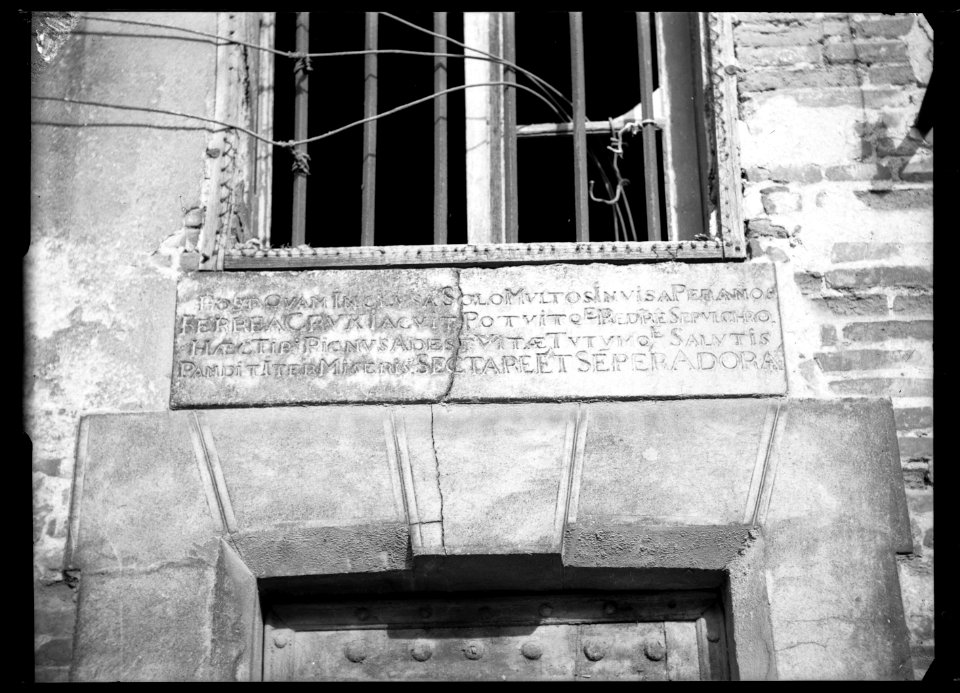 POSTQVAM INCLVSA SOLO MVLTOS INVISA PER ANOS
FERREA CRVX IACVIT POTVITQE REDRE SEPVLCHRO
HÆC TIBI PIGNVS ADEST VITÆ TVTVMQE SALVTIS
PANDIT ITER MISERIS SECTARE ET SEPER ADORA